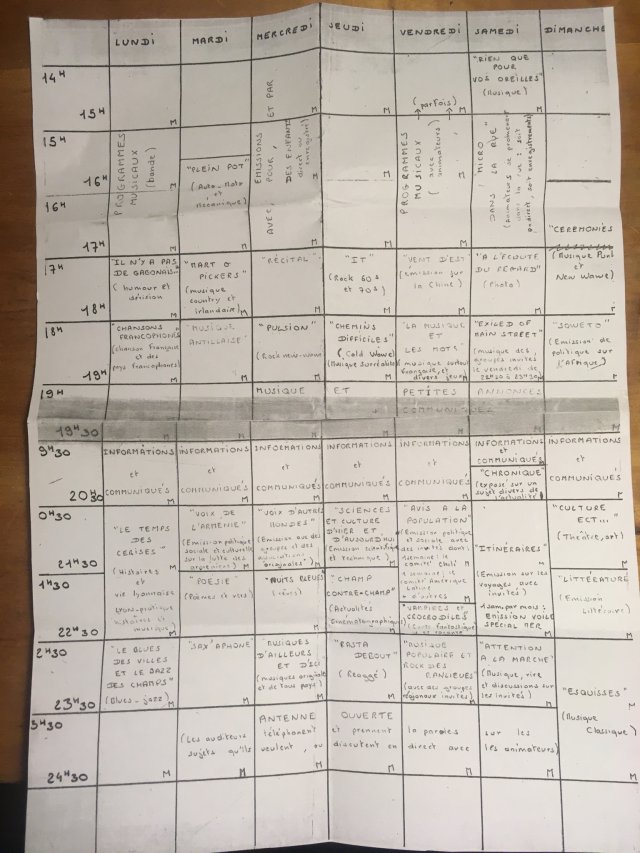 LUNDI MARDI MERCREDI JEUDI VENDREDI SAMEDI DIMANCHE
14H
15H
ET PAR
(parfois)
"RIEN QUE
POUR
VOS OREILLES"
(Musique)
M M M M M
15H
16H
16H
17H
PROGRAMMES
MUSICAUX
(bande)
"PLEIN POT"
(Auto-Moto
et
Mécanique)
AVEC, POUR, EMISSIONS
DES ENFANTS
direct ou
enregistré)
PROGRAMMES
MUSICAUX
(avec
animateurs)
"MICRO
DANS LA RUE"
(Animateurs se promènent
dans la rue : soit
en direct, soit enregistrements)
"CEREMONIES
17H
18H
"IL N'Y A PAS
DE GAGONAIS"
(humour et
dérision
"MART O
PICKERS"
(musique
country et
irlandaise)
"RÉCITAL"
"IT"
(Rock 60s
et 70s)
"VENT D'EST"
(émission sur
la Chine)
"A L'ÉCOUTE
DU REGARD"
(Photo)
(Musique Punk
et
New Wawe)
18H
19H
"CHANSONS
FRANCOPHONES
(chanson Française
et des
pays francophones)
"MUSIQUE
ANTILLAISE"
"PULSION"
(Rock new-wawe
"CHEMINS
DIFFICILES"
(Cold Wawe)
(Musique Surréaliste
"LA MUSIQUE
ET
LES MOTS"
(musique surtout
Française, et
divers jeux)
"EXILED OF
MAIN STREET"
(musique des
groupes invités
le vendredi de
"SOWETO"
(Emission de
politique sur
l'Afrique)
19H
19H30
MUSIQUE ET PETITES ANNONCES
COMMUNIQUES
9H30
20H30
INFORMATIONS
et
COMMUNIQUÉS
INFORMATIONS
et
COMMUNIQUÉS
INFORMATIONS
et
COMMUNIQUÉS
INFORMATIONS
et
COMMUNIQUÉS
INFORMATIONS
et
COMMUNIQUÉS
INFORMATIONS
et
COMMUNIQUÉS
"CHRONIQUE"
(exposé sur un
sujet divers de
l'actualité)
INFORMATIONS
et
COMMUNIQUÉS
0H30
21H30
"LE TEMPS
DES
CERISES"
(Histoires
et
vie lyonnaise
Lyon-pratique
histoires et
musique)
"VOIX DE
L'ARMENIE"
(Emission politique
sociale et culturelle
sur la lutte des
arméniens)
"VOIX D'AUTRES
MONDES"
(Emission avec des
groupes et des
associations
originales)
"SCIENCES
ET CULTURE
D'HIER ET
D'AUJOURD'HUI
(Emission scientifique
et technique)
"AVIS A LA
POPULATION"
(Emission politique
et sociale avec
des invités dont:
1 semaine: le
comité Chili
1 semaine: le
comité Amérique
Latine
+ d'autres
"ITINÉRAIRES"
(Emission sur les
voyages avec
invités)
1 sam. par mois:
EMISSION VOILE
SPECIAL MER
"CULTURE
ECT..."
(Théâtre, art)
1H30
22H30
"POÉSIE"
(Poèmes et vers)
"NUITS BLEUES"
"CHAMP
CONTRE-CHAMP"
(Actualités
Cinématographiques)
"VAMPIRES et
CROCODILES"
"LITTÉRATURE"
(Emission
Littéraire)
2H30
23H30
"LE BLUES
DES VILLES
ET LE JAZZ
DES CHAMPS"
(Blues-jazz)
"SAX'APHONE"
"MUSIQUES
D'AILLEURS
ET D'ICI"
(musiques originales
et de tous pays)
"RASTA
DEBOUT"
(Reaggé)
"MUSIQUE
POPULAIRE ET
ROCK DES
BANLIEUES"
(avec des groupes
régionaux invités)
"ATTENTION
A LA MARCHE"
(Musique, rire
et discussions sur
les invités)
"ESQUISSES"
(Musique
Classique)
3H30
24H30
ANTENNE OUVERTE
(Les auditeurs téléphonent et prennent la paroles sur les
sujets qu'ils veulent, ou discutent en direct avec les animateurs)
M M M M M M